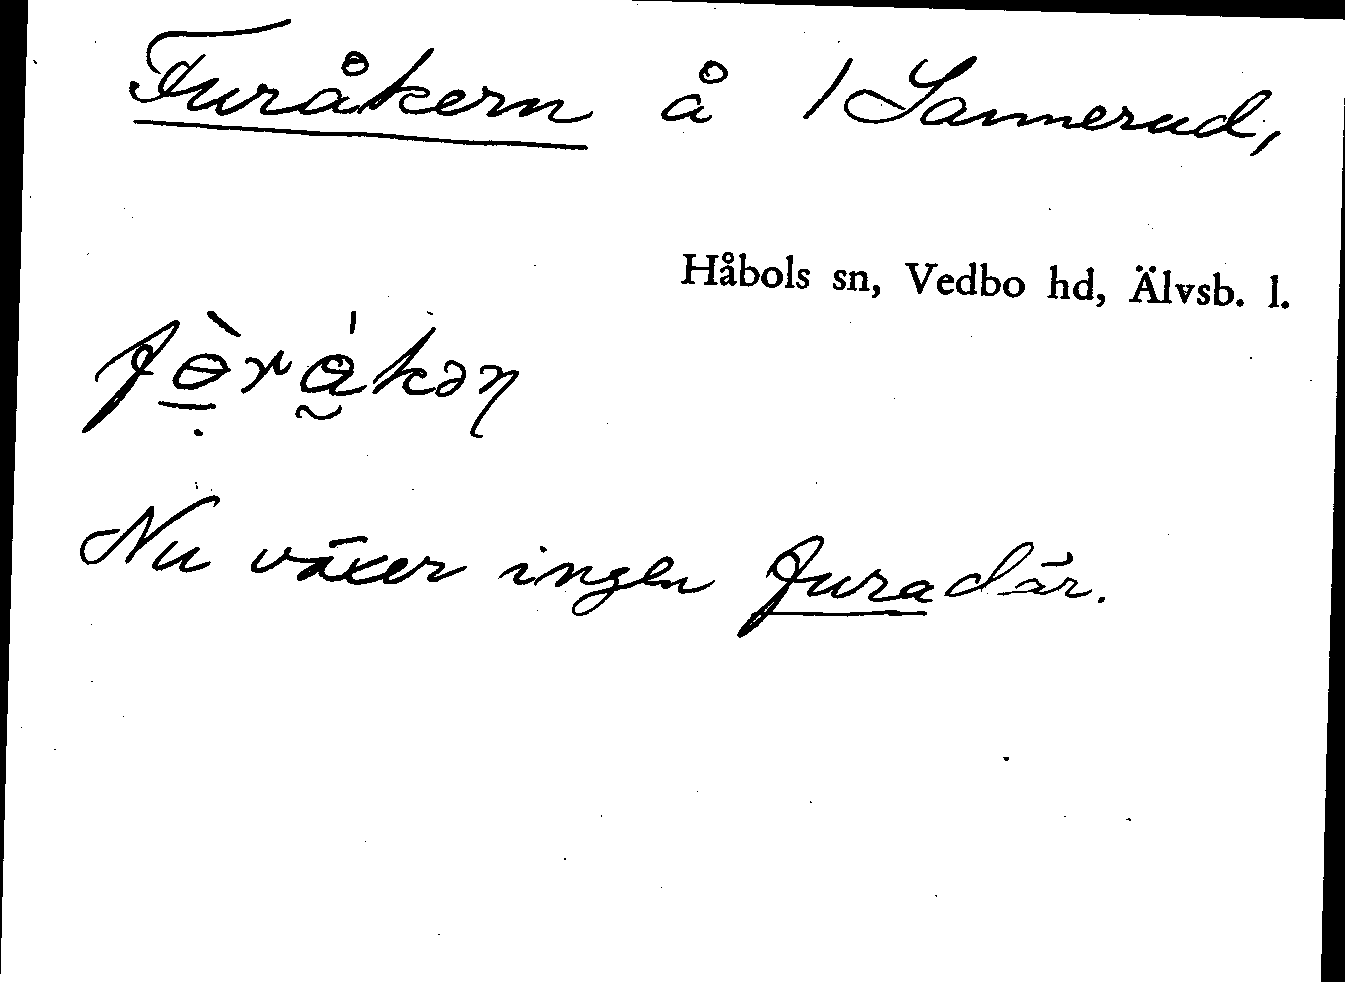 Furåkern å 1 Sannerud,
Håbols sn, Vedbo hd, Älvsb. l.
Nu växer ingen fura där.